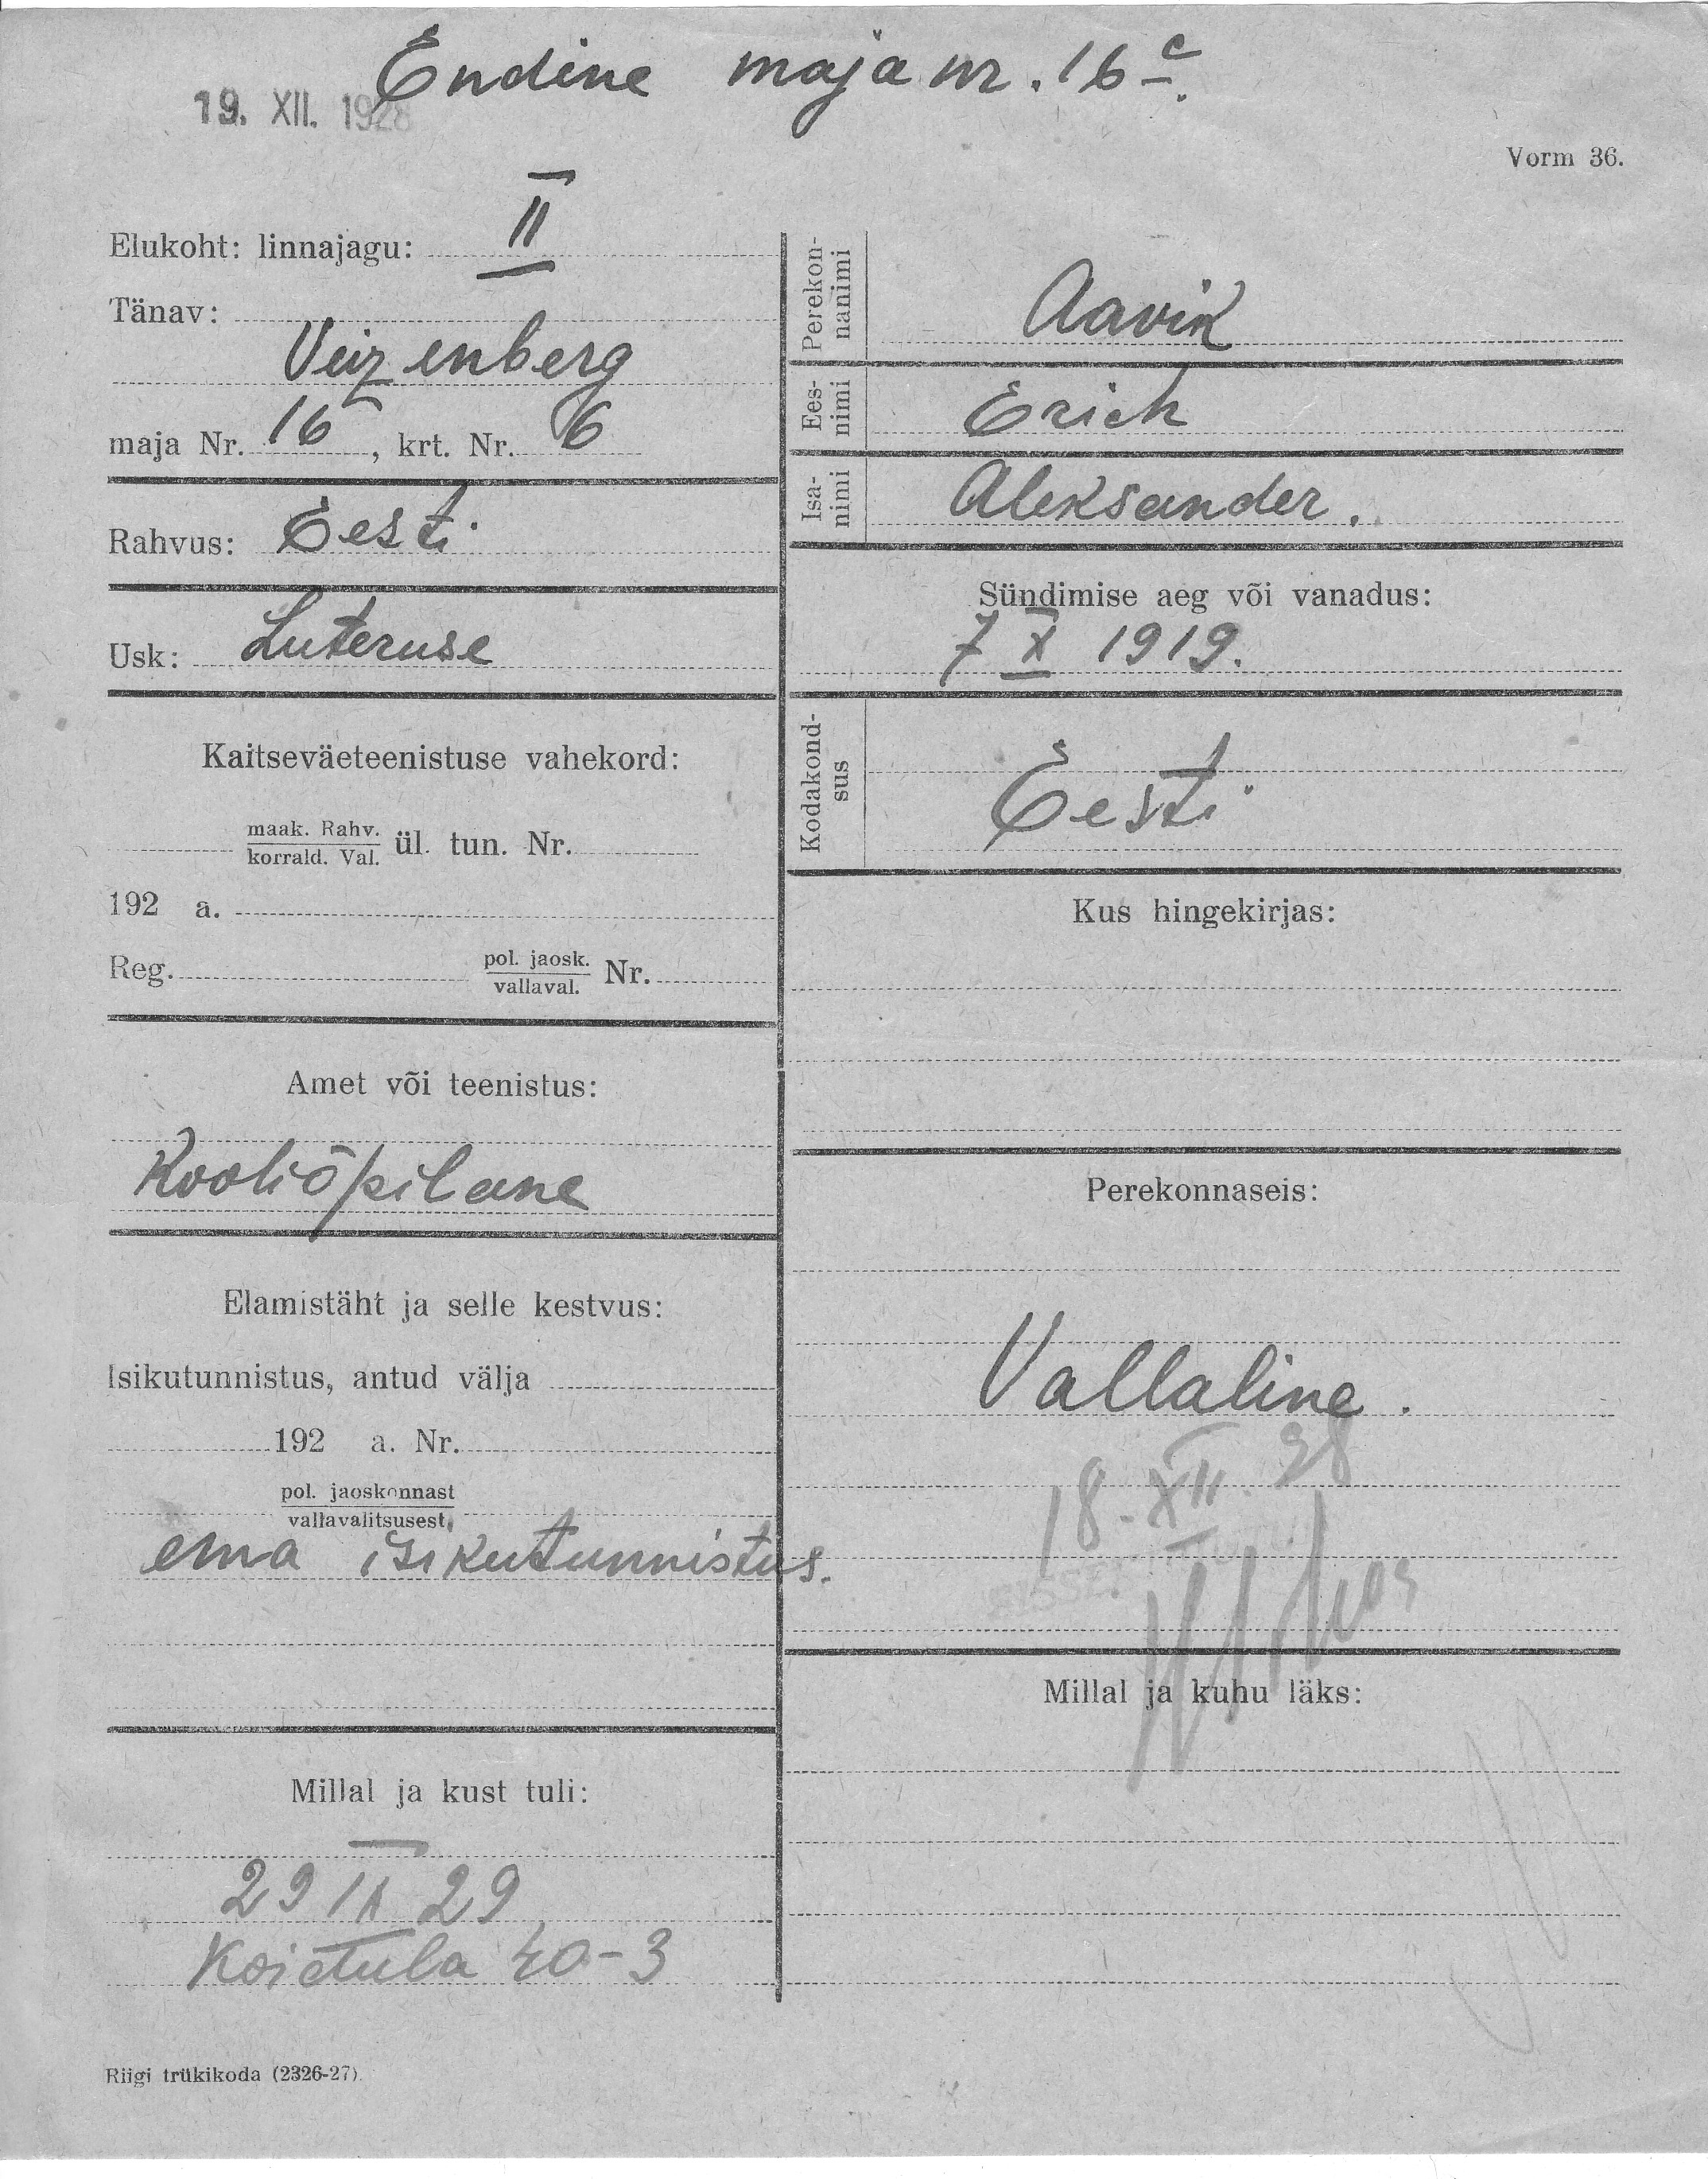 Endine maja nr. 16c.
19. XII. 1928
Vorm 36.
Elukoht: linnajagu: II
Tänav:
Veizenberg
maja Nr. 16, krt. Nr. 6
Rahvus: Eesti
Usk: Luteruse
Kaitseväeteenistuse vahekord:
maak. Rahv.
korrald. Val. ül. tun. Nr.
192 a.
Reg. pol. jaosk.
vallaval. Nr.
Amet või teenistus:
Kooliõpilane
Elamistäht ja selle kestvus:
Isikutunnistus, antud välja
192 a. Nr.
pol. jaoskonnast
vallavalitsusest,
ema isikutunnistus.
Millal ja kust tuli:
29 IX 29
Koidula 40-3
Riigi trükikoda (2326-27).
Perekon-
nanimi
Aavik
Ees-
nimi
Erich
Isa-
nimi
Aleksander.
Sündimise aeg või vanadus:
7 X 1919.
Kodakond-
sus
Eesti
Kus hingekirjas:
Perekonnaseis:
Vallaline.
18. XII. 28
Millal ja kuhu läks: